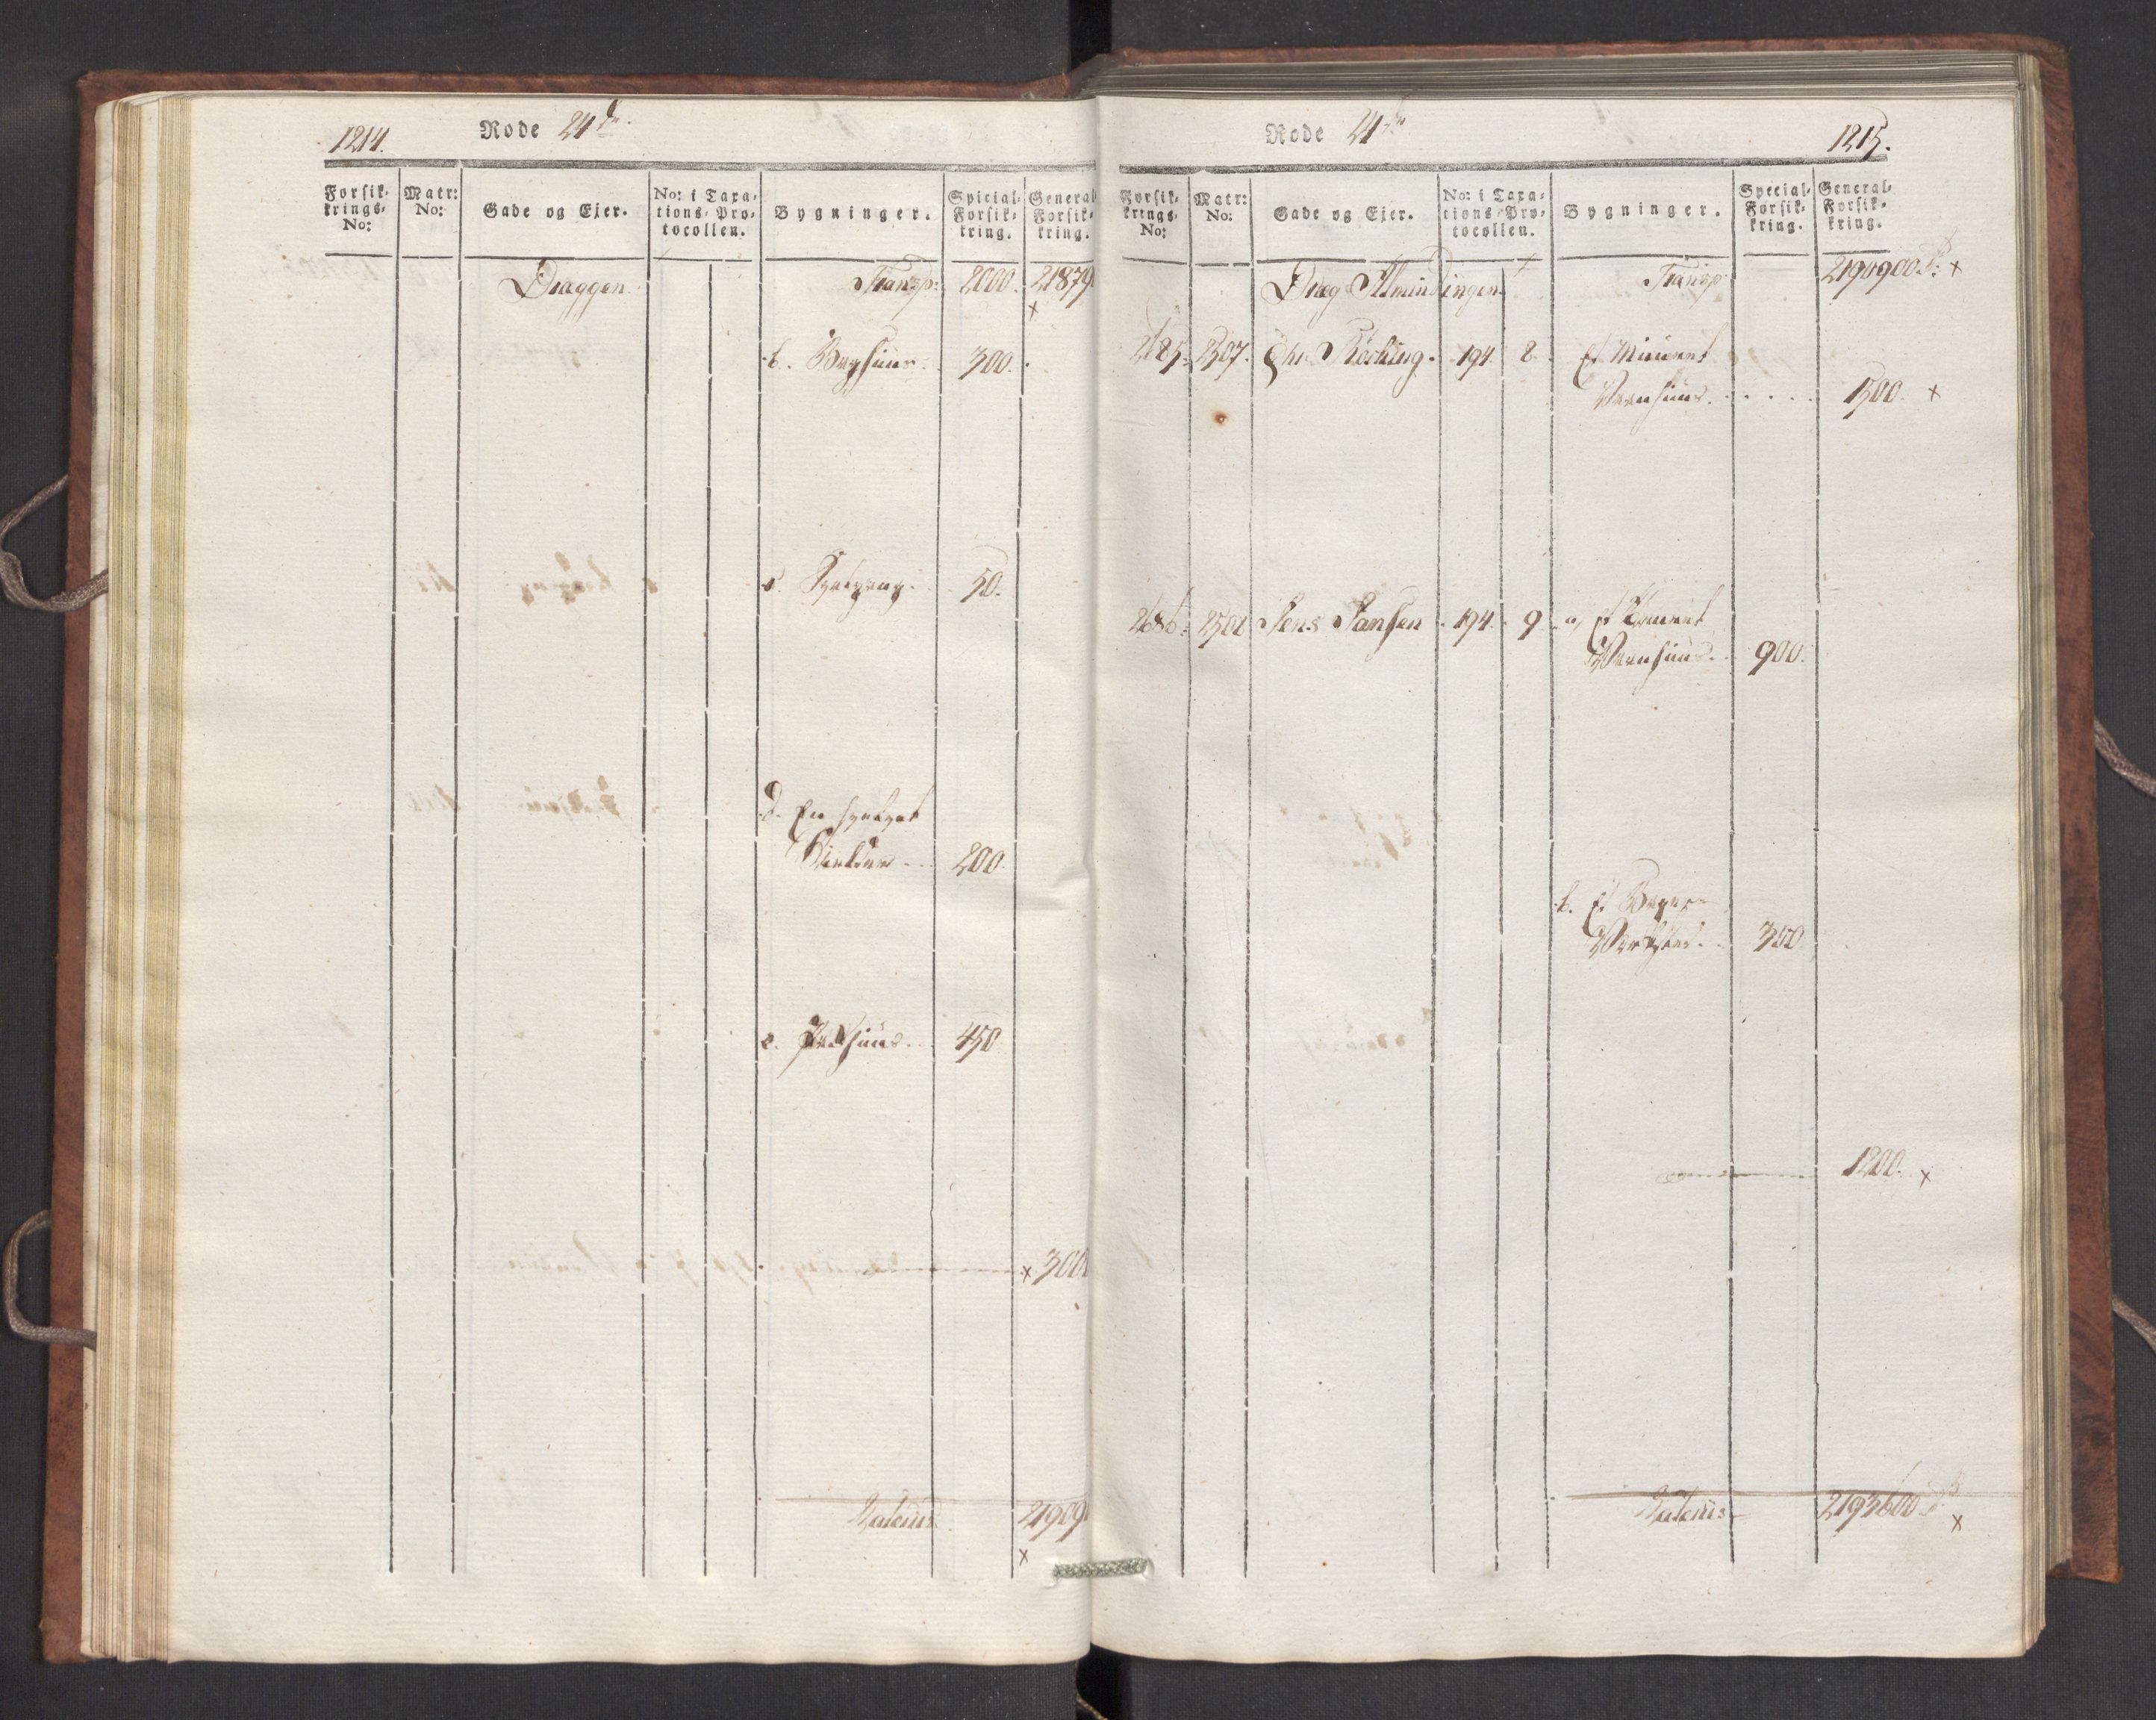 1214.
Rode 24de
Forsik-
krings-
No:
Matr:
No:
Gade og Ejer.
No: i Taxa-
tions-Pro-
tocollen.
Bygninger.
Special-
Forsik-
kring.
General-
Forsik-
kring.
Dræggen Transp: 2000. 21879
x
b. Bryghuus 300.
c. 50.
d. En hvelvet
Kielder 200.
e. 450
x 300
Lateris 21909
x
Rode 24de
1215.
Forsik-
krings-
No:
Matr:
No:
Gade og Ejer.
No: i Taxa-
tions-Pro-
tocollen.
Bygninger.
Special-
Forsik-
kring.
General-
Forsik-
kring.
Dræg Almindingen Transp: 2190900 x
2307. Chr. 194. 8. Et Muuret
Vaanhuus 1500. x
2686. Jens Jansen 194. 9. a, Et
Vaanhuus. 900.
b. Et
350.
1200. x
Lateris 2193600 x